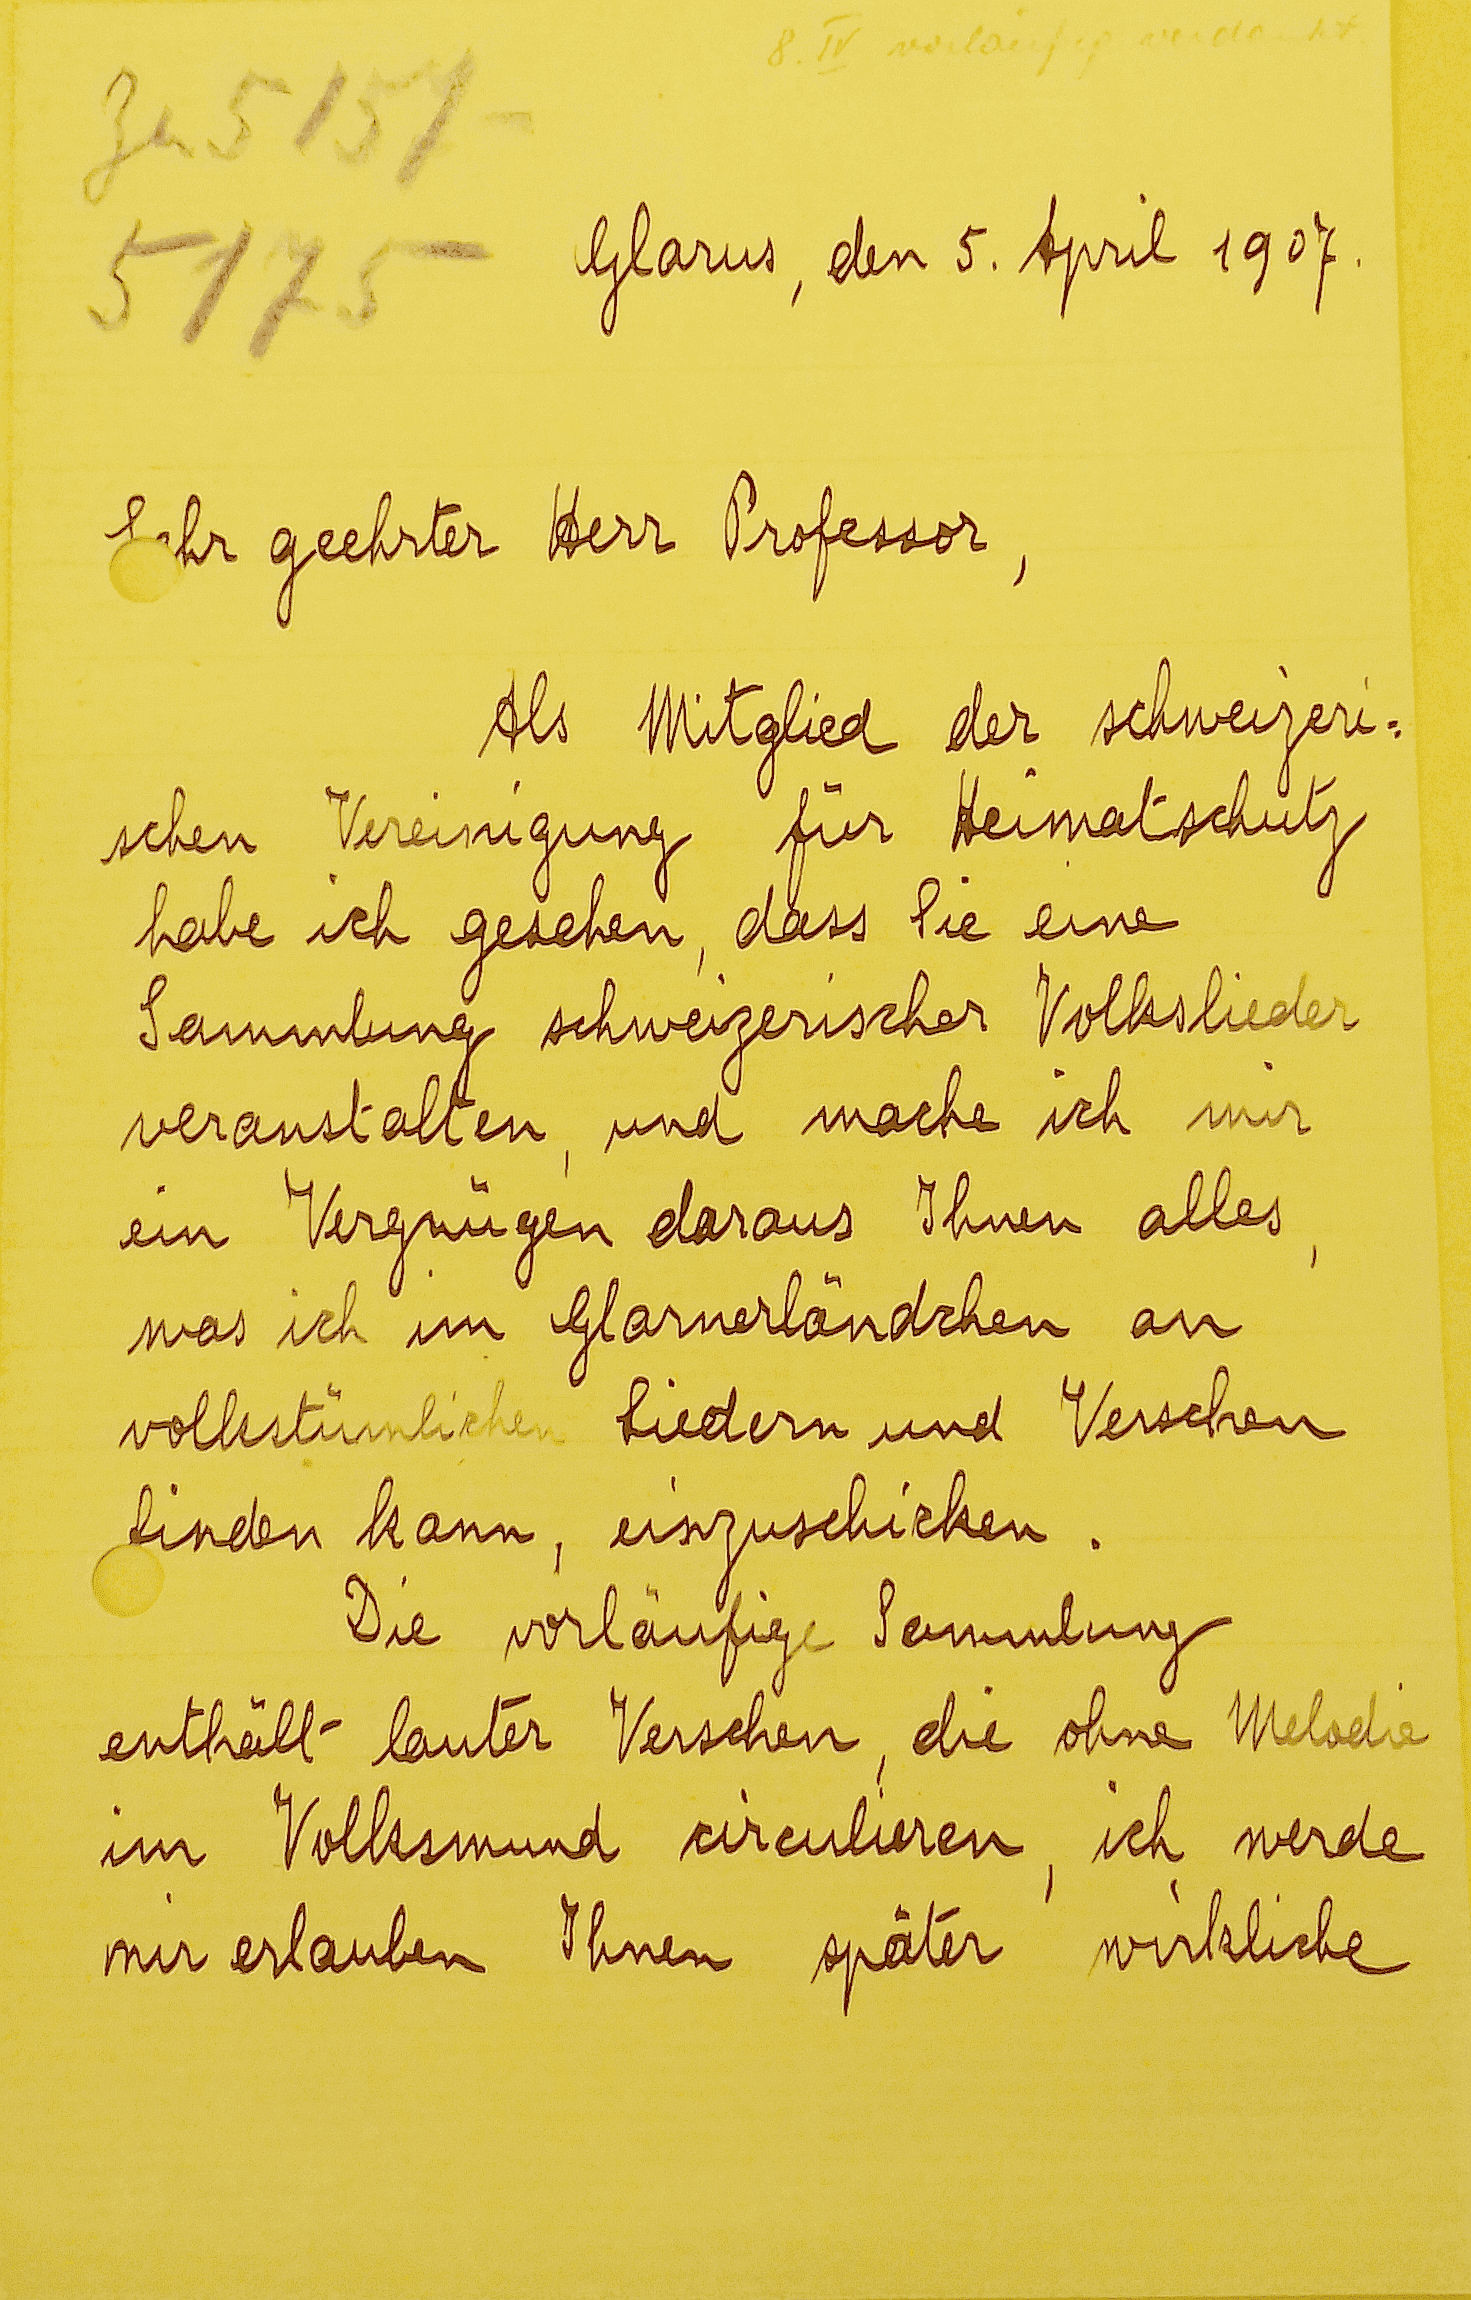 8. IV vorläufig verdankt.
Zu 5157-
5175
Glarus, den 5. April 1907.
Sehr geehrter Herr Professor,
Als Mitglied der schweizeri=
schen Vereinigung für Heimatschutz
habe ich gesehen, dass Sie eine
Sammlung schweizerischer Volkslieder
veranstalten, und mache ich mir
ein Vergnügen daraus Ihnen alles,
was ich im Glarnerländchen an
volkstümlichen Liedern und Verschen
finden kann, einzuschicken.
Die vorläufige Sammlung
enthält lauter Verschen, die ohne Melodie
im Volksmund circulieren, ich werde
mir erlauben Ihnen später wirkliche